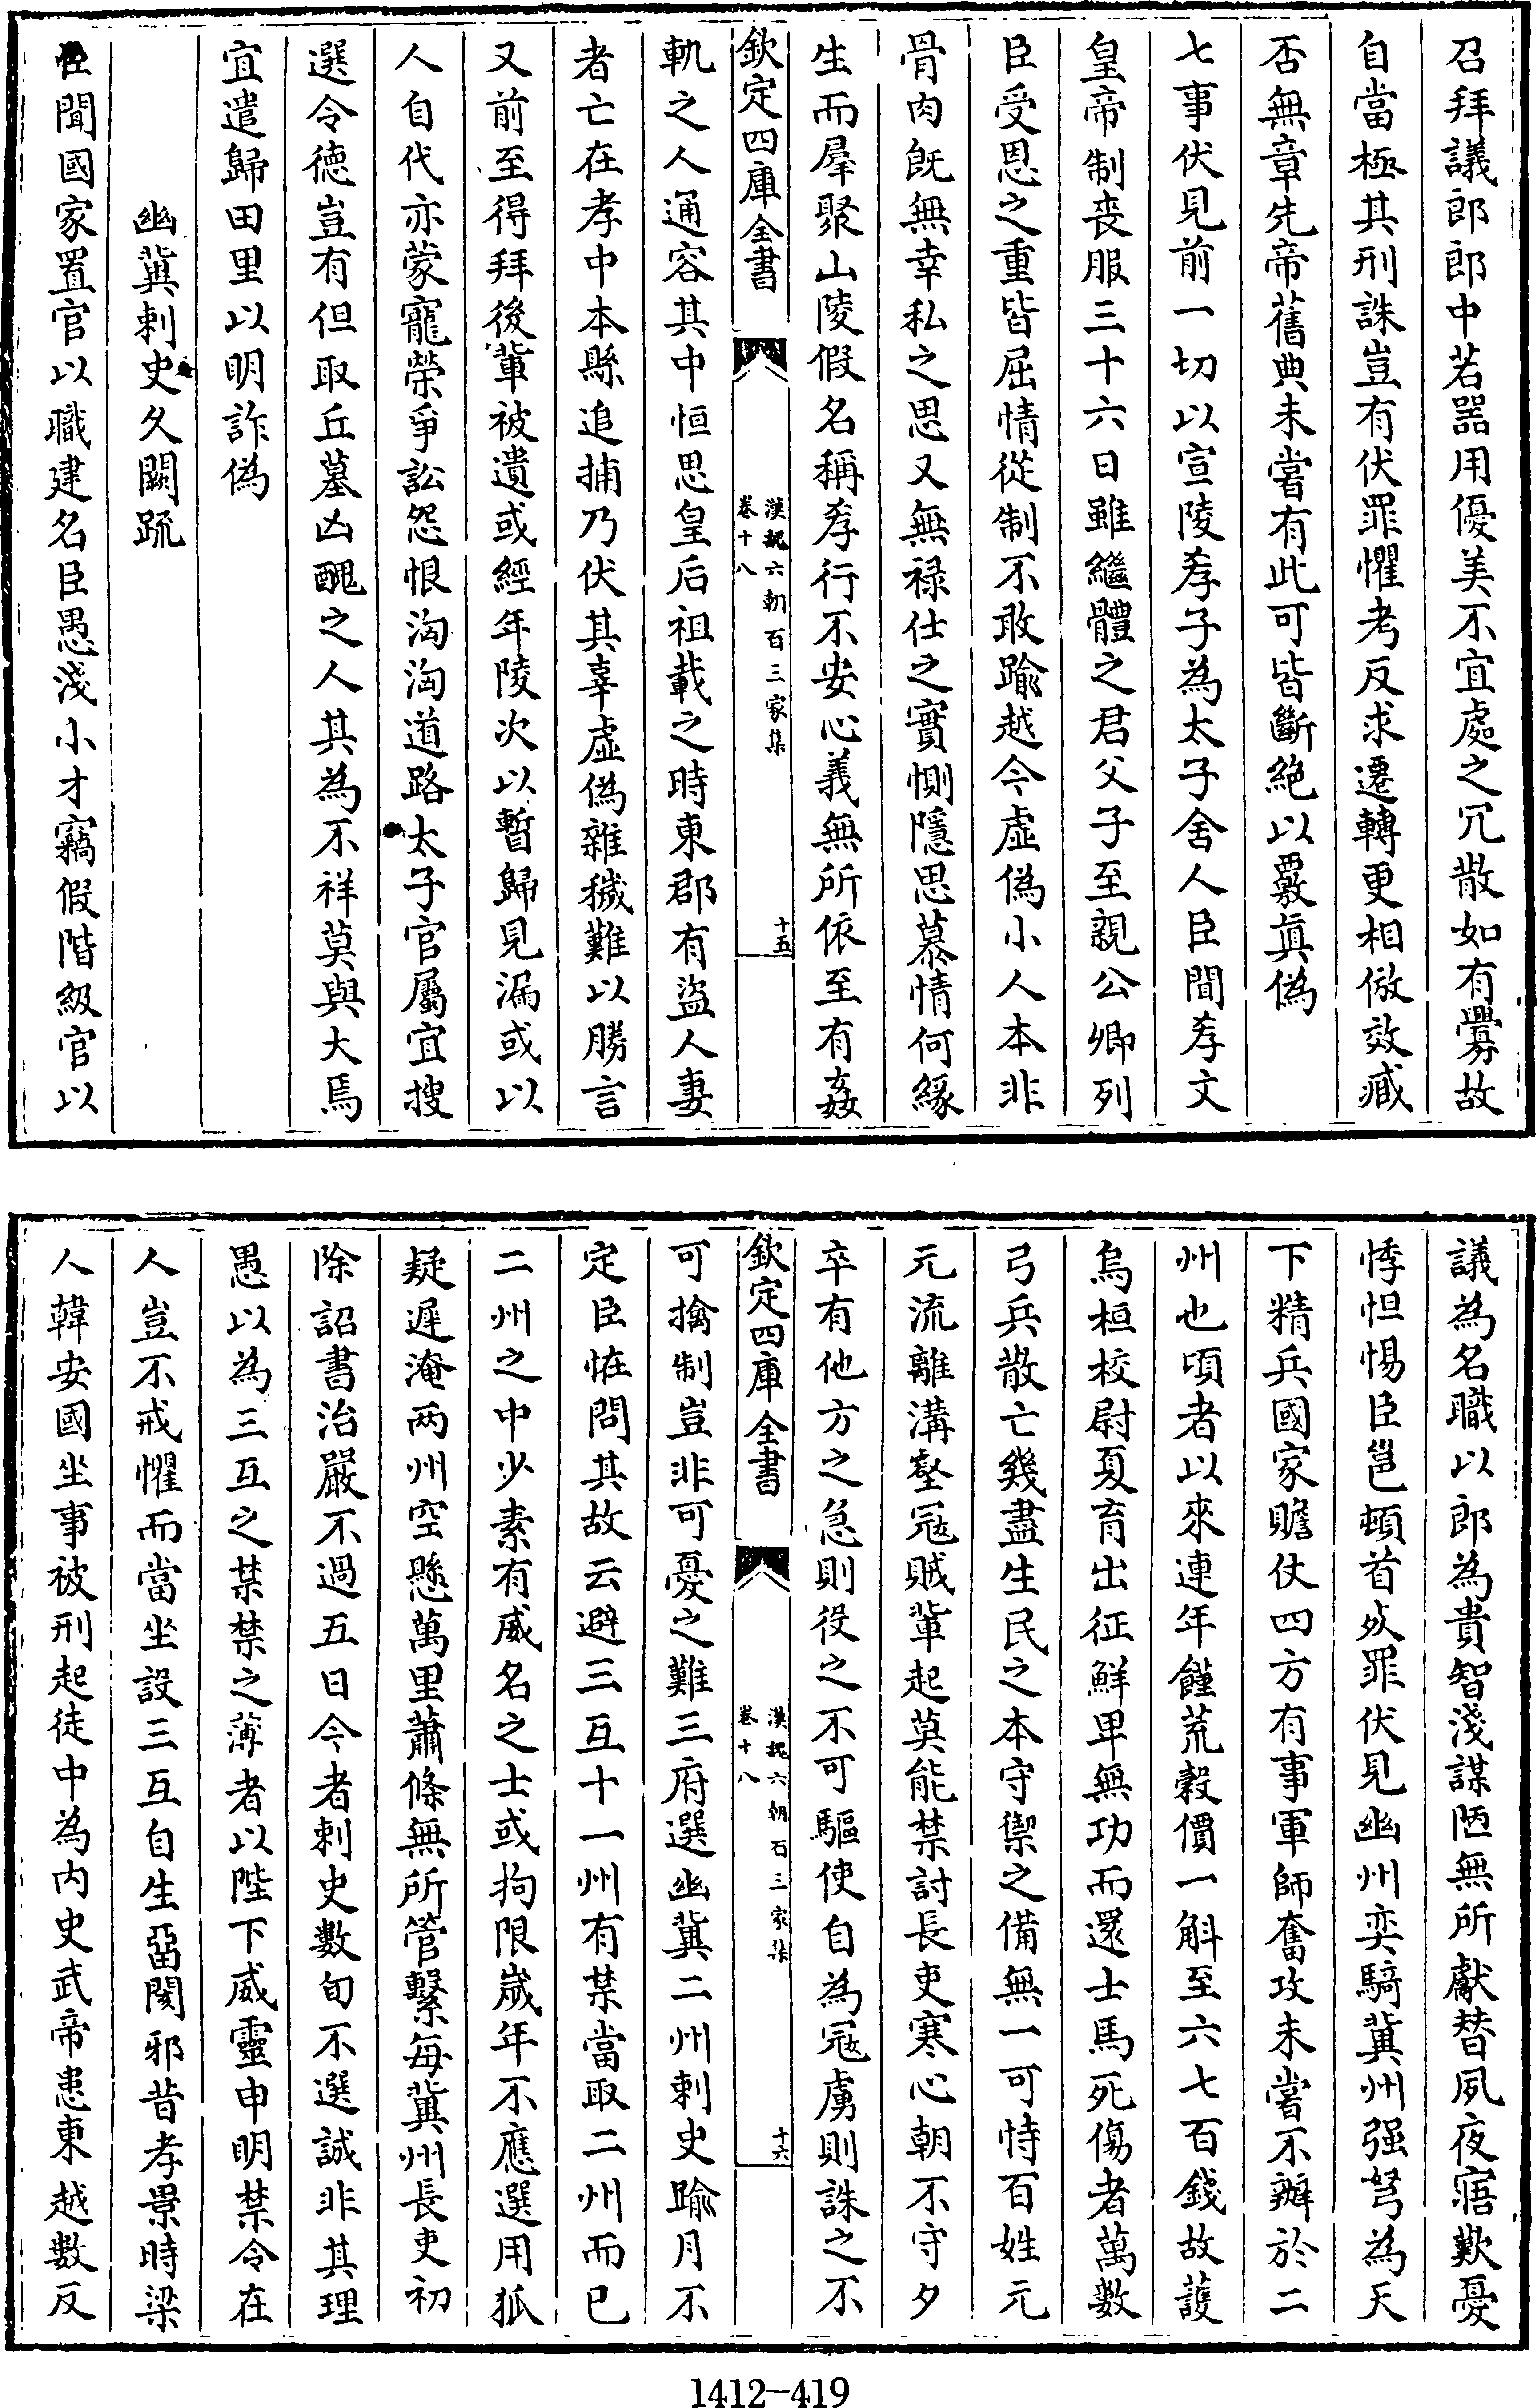 召拜議郎郎中若器用優美不宜處之冗散如有釁故
自當極其刑誅豈有伏罪懼考反求遷轉更相倣效臧
否無章先帝舊典未嘗有此可皆斷絶以覈真偽
七事伏見前一切以宣陵孝子為太子舍人臣聞孝文
皇帝制喪服三十六日雖繼體之君父子至親公卿列
臣受恩之重皆屈情從制不敢踰越今虛偽小人本非
骨肉既無幸私之思又無禄仕之實惻隱思慕情何緣
生而羣聚山陵假名稱孝行不安心義無所依至有姦
欽定四庫全書
漢魏六朝百三家集
卷十八
十五
軌之人通容其中恒思皇后祖載之時東郡有盜人妻
者亡在孝中本縣追捕乃伏其辜虛偽雜穢難以勝言
又前至得拜後輩被遺或經年陵次以暫歸見漏或以
人自代亦蒙寵榮爭訟怨恨洶洶道路太子官屬宜搜
選令德豈有但取丘墓凶醜之人其為不祥莫與大焉
宜遣歸田里以明詐偽
幽冀刺史久闕疏
臣聞國家置官以職建名臣愚淺小才竊假階級官以
議為名職以郎為貴智淺謀陋無所獻替夙夜寤歎憂
悸怛惕臣邕頓首死罪伏見幽州奕騎冀州强弩為天
下精兵國家贍仗四方有事軍師奮攻未嘗不辦於二
州也頃者以來連年饉荒穀價一斛至六七百錢故護
烏桓校尉夏育出征鮮卑無功而還士馬死傷者萬數
弓兵散亡幾盡生民之本守禦之備無一可恃百姓元
元流離溝壑冦賊輩起莫能禁討長吏寒心朝不守夕
卒有他方之急則役之不可驅使自為冦虜則誅之不
欽定四庫全書
漢魏六朝百三家集
卷十八
十六
可擒制豈非可憂之難三府選幽冀二州刺史踰月不
定臣恠問其故云避三互十一州有禁當取二州而已
二州之中少素有威名之士或拘限嵗年不應選用狐
疑遲淹兩州空懸萬里蕭條無所管繫每冀州長吏初
除詔書治嚴不過五日今者刺史數旬不選誠非其理
愚以為三互之禁禁之薄者以陛下威靈申明禁令在
人豈不戒懼而當坐設三互自生畱閡邪昔孝景時梁
人韓安國坐事被刑起徒中為内史武帝患東越數反
1412-419